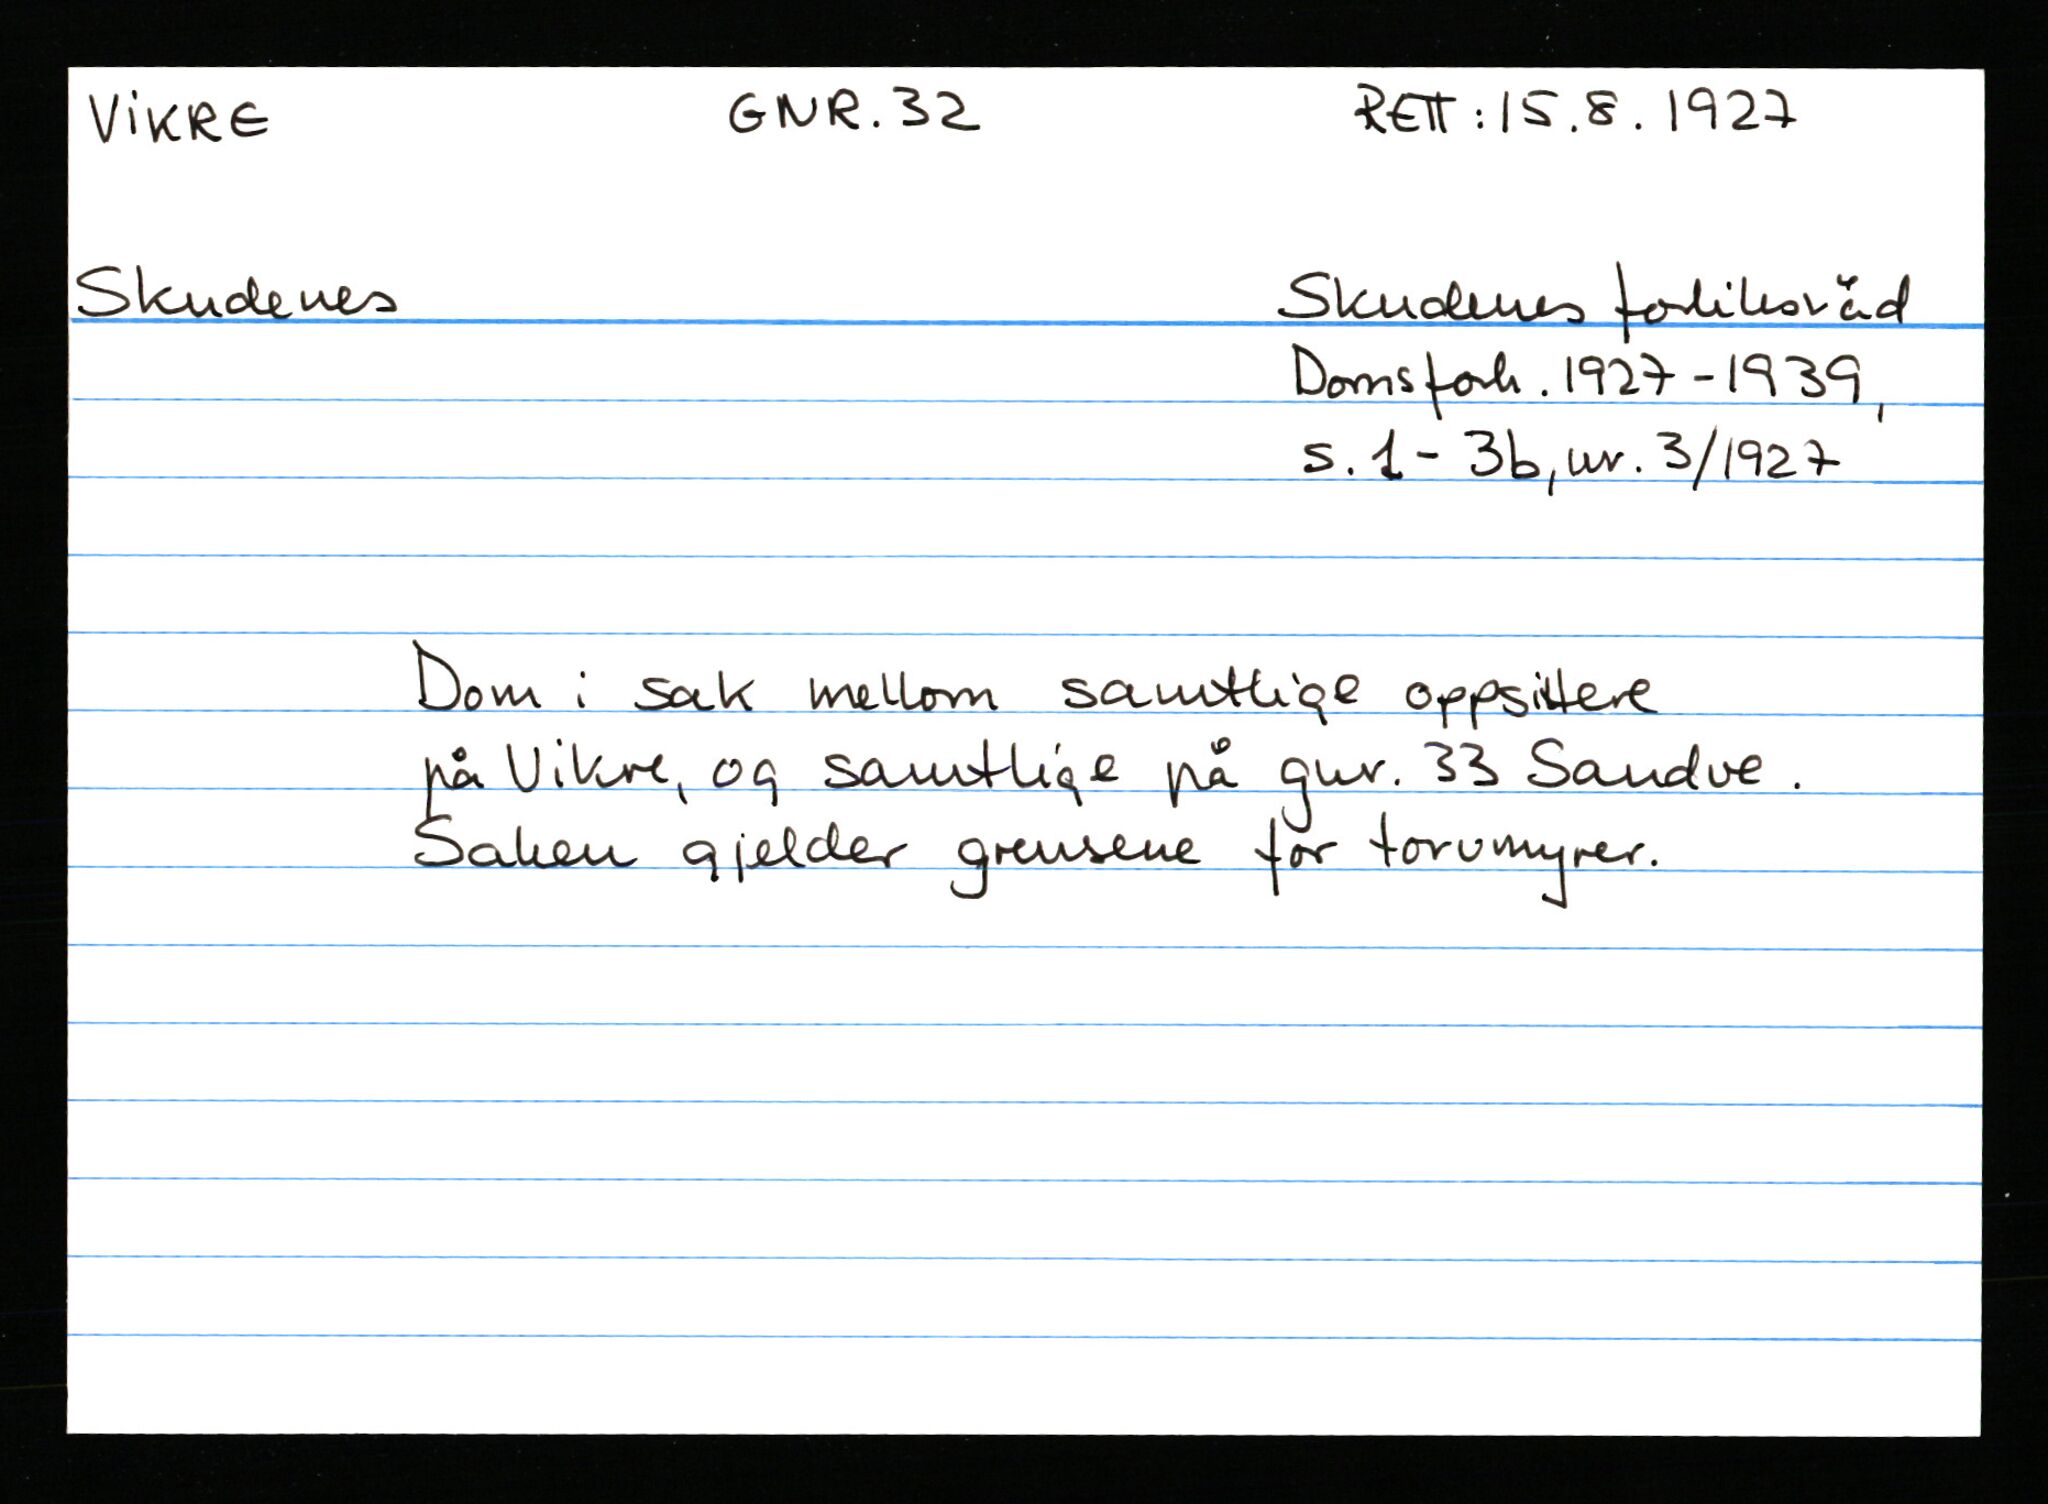 VIKRE GNR. 32 RETT: 15.8.1927
Skudenes Skudenes forliksråd
Domsforh. 1927-1939,
s. 1 - 3b, nr. 3/1927
Dom i sak mellom samtlige oppsittere
på Vikre, og samtlige på gnr. 33 Sandve.
Saken gjelder grensene for torvmyrer.